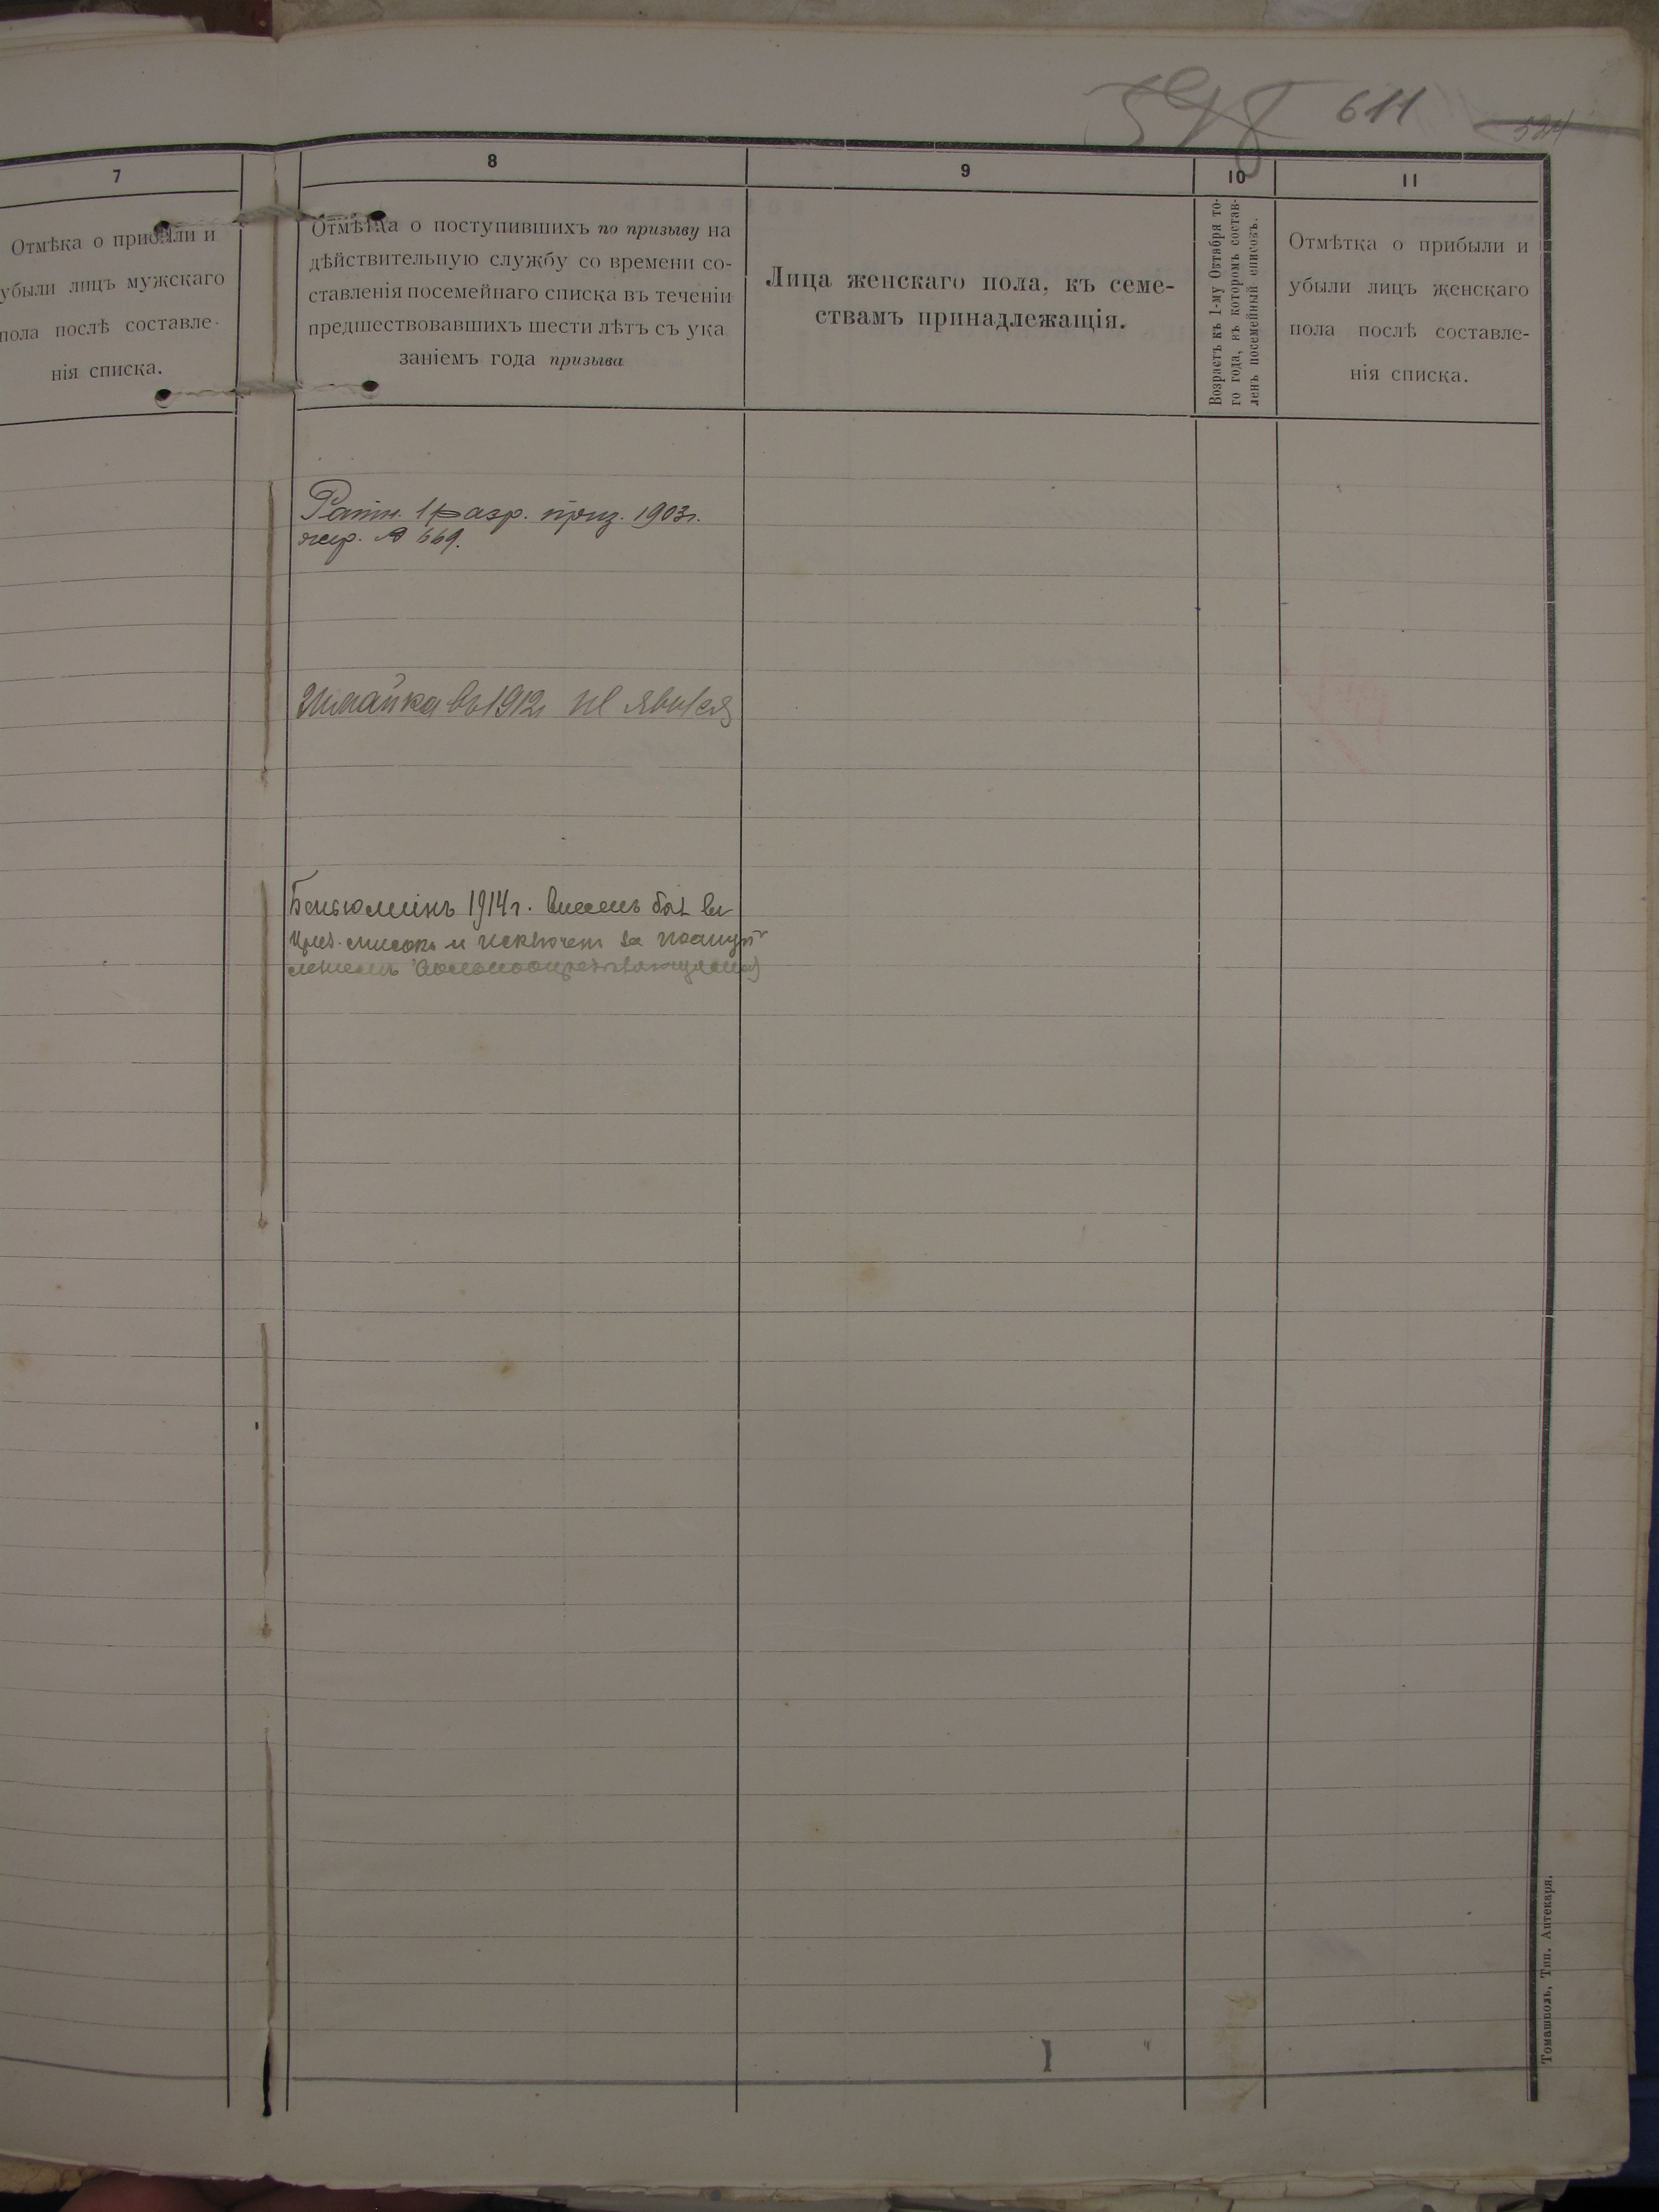 598 611 524
7
Отмѣка о прибыли и
убыли лицъ мужскаго
пола послѣ составле-
нія списка.
8
Отмѣтка о поступившихъ по призыву на
дѣйствительную службу со времени со-
ставленія посемейнаго списка въ теченіи
предшествовавшихъ шести лѣтъ съ ука
заніемъ года призыва
9
Лица женскаго пола, къ семе-
ствамъ принадлежащія.
10
Возрастъ къ 1-му Октября то-
го года, въ которомъ состав-
ленъ посемейный списокъ.
11
Отмѣтка о прибыли и
убыли лицъ женскаго
пола послѣ составле-
нія списка.
Ратн. 1 разр. приз. 1903 г.
жер. № 669.
Шмайка въ 1912 г не явился
Беньюминъ 1914 г. внесенъ был въ
приз. списокъ и исключенъ за поступ
леніемъ
Томашполь, Тип. Аптекаря.